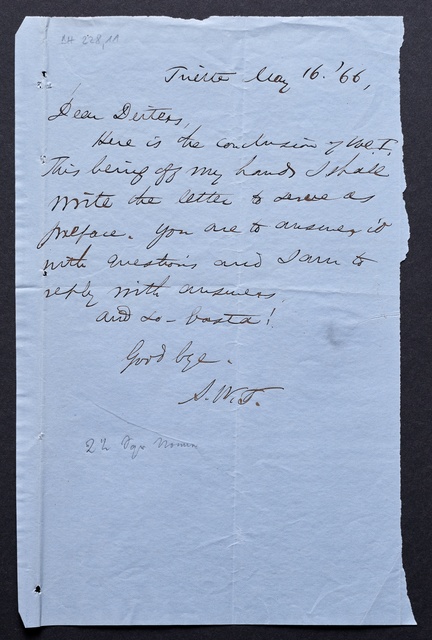 Trieste May 16. '66,
Dear Deiters,
Here is the conclusion of Vol. I.
This being off my hands I shall
write the letter to serve as
preface. You are to answer it
with questions and I am to
reply with answers.
and so – basta!
Good bye.
A. W. T.